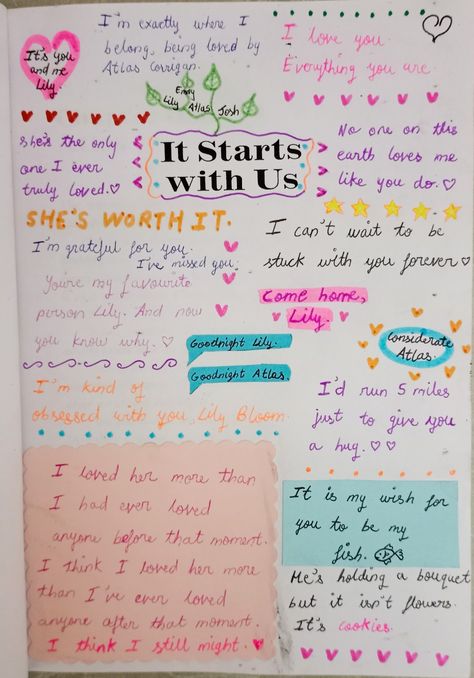 It's you
and me
Lily.
I'm exactly where I
belong, being loved by
Atlas Corrigan.
I love you.
Everything you are.
Emmy
Lily
Atlas
Josh
She's the only
one I ever
truly loved.♡
It Starts
with Us
No one on this
earth loves me
like you do.♡
SHE'S WORTH IT.
I'm grateful for you.
I've missed you.
I can't wait to be
stuck with you forever♡
You're my favourite
person Lily. And now
you know why.♡
Come home,
Lily.
Goodnight Lily.
Goodnight Atlas.
Considerate
Atlas.
I'm kind of
obsessed with you, Lily Bloom.
I'd run 5 miles
just to give you
a hug.♡♡
I loved her more than
I had ever loved
anyone before that moment.
I think I loved her more
than I've ever loved
anyone after that moment.
I think I still might.♥
It is my wish for
you to be my
fish.
He's holding a bouquet
but it isn't flowers.
It's cookies.